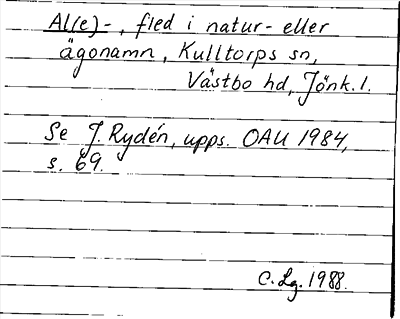 Al(e)-, fled i natur- eller
ägonamn, Kulltorps sn,
Västbo hd, Jönk. l.
Se J. Rydén, upps. OAU 1984,
s. 69.
C. Lg. 1988.